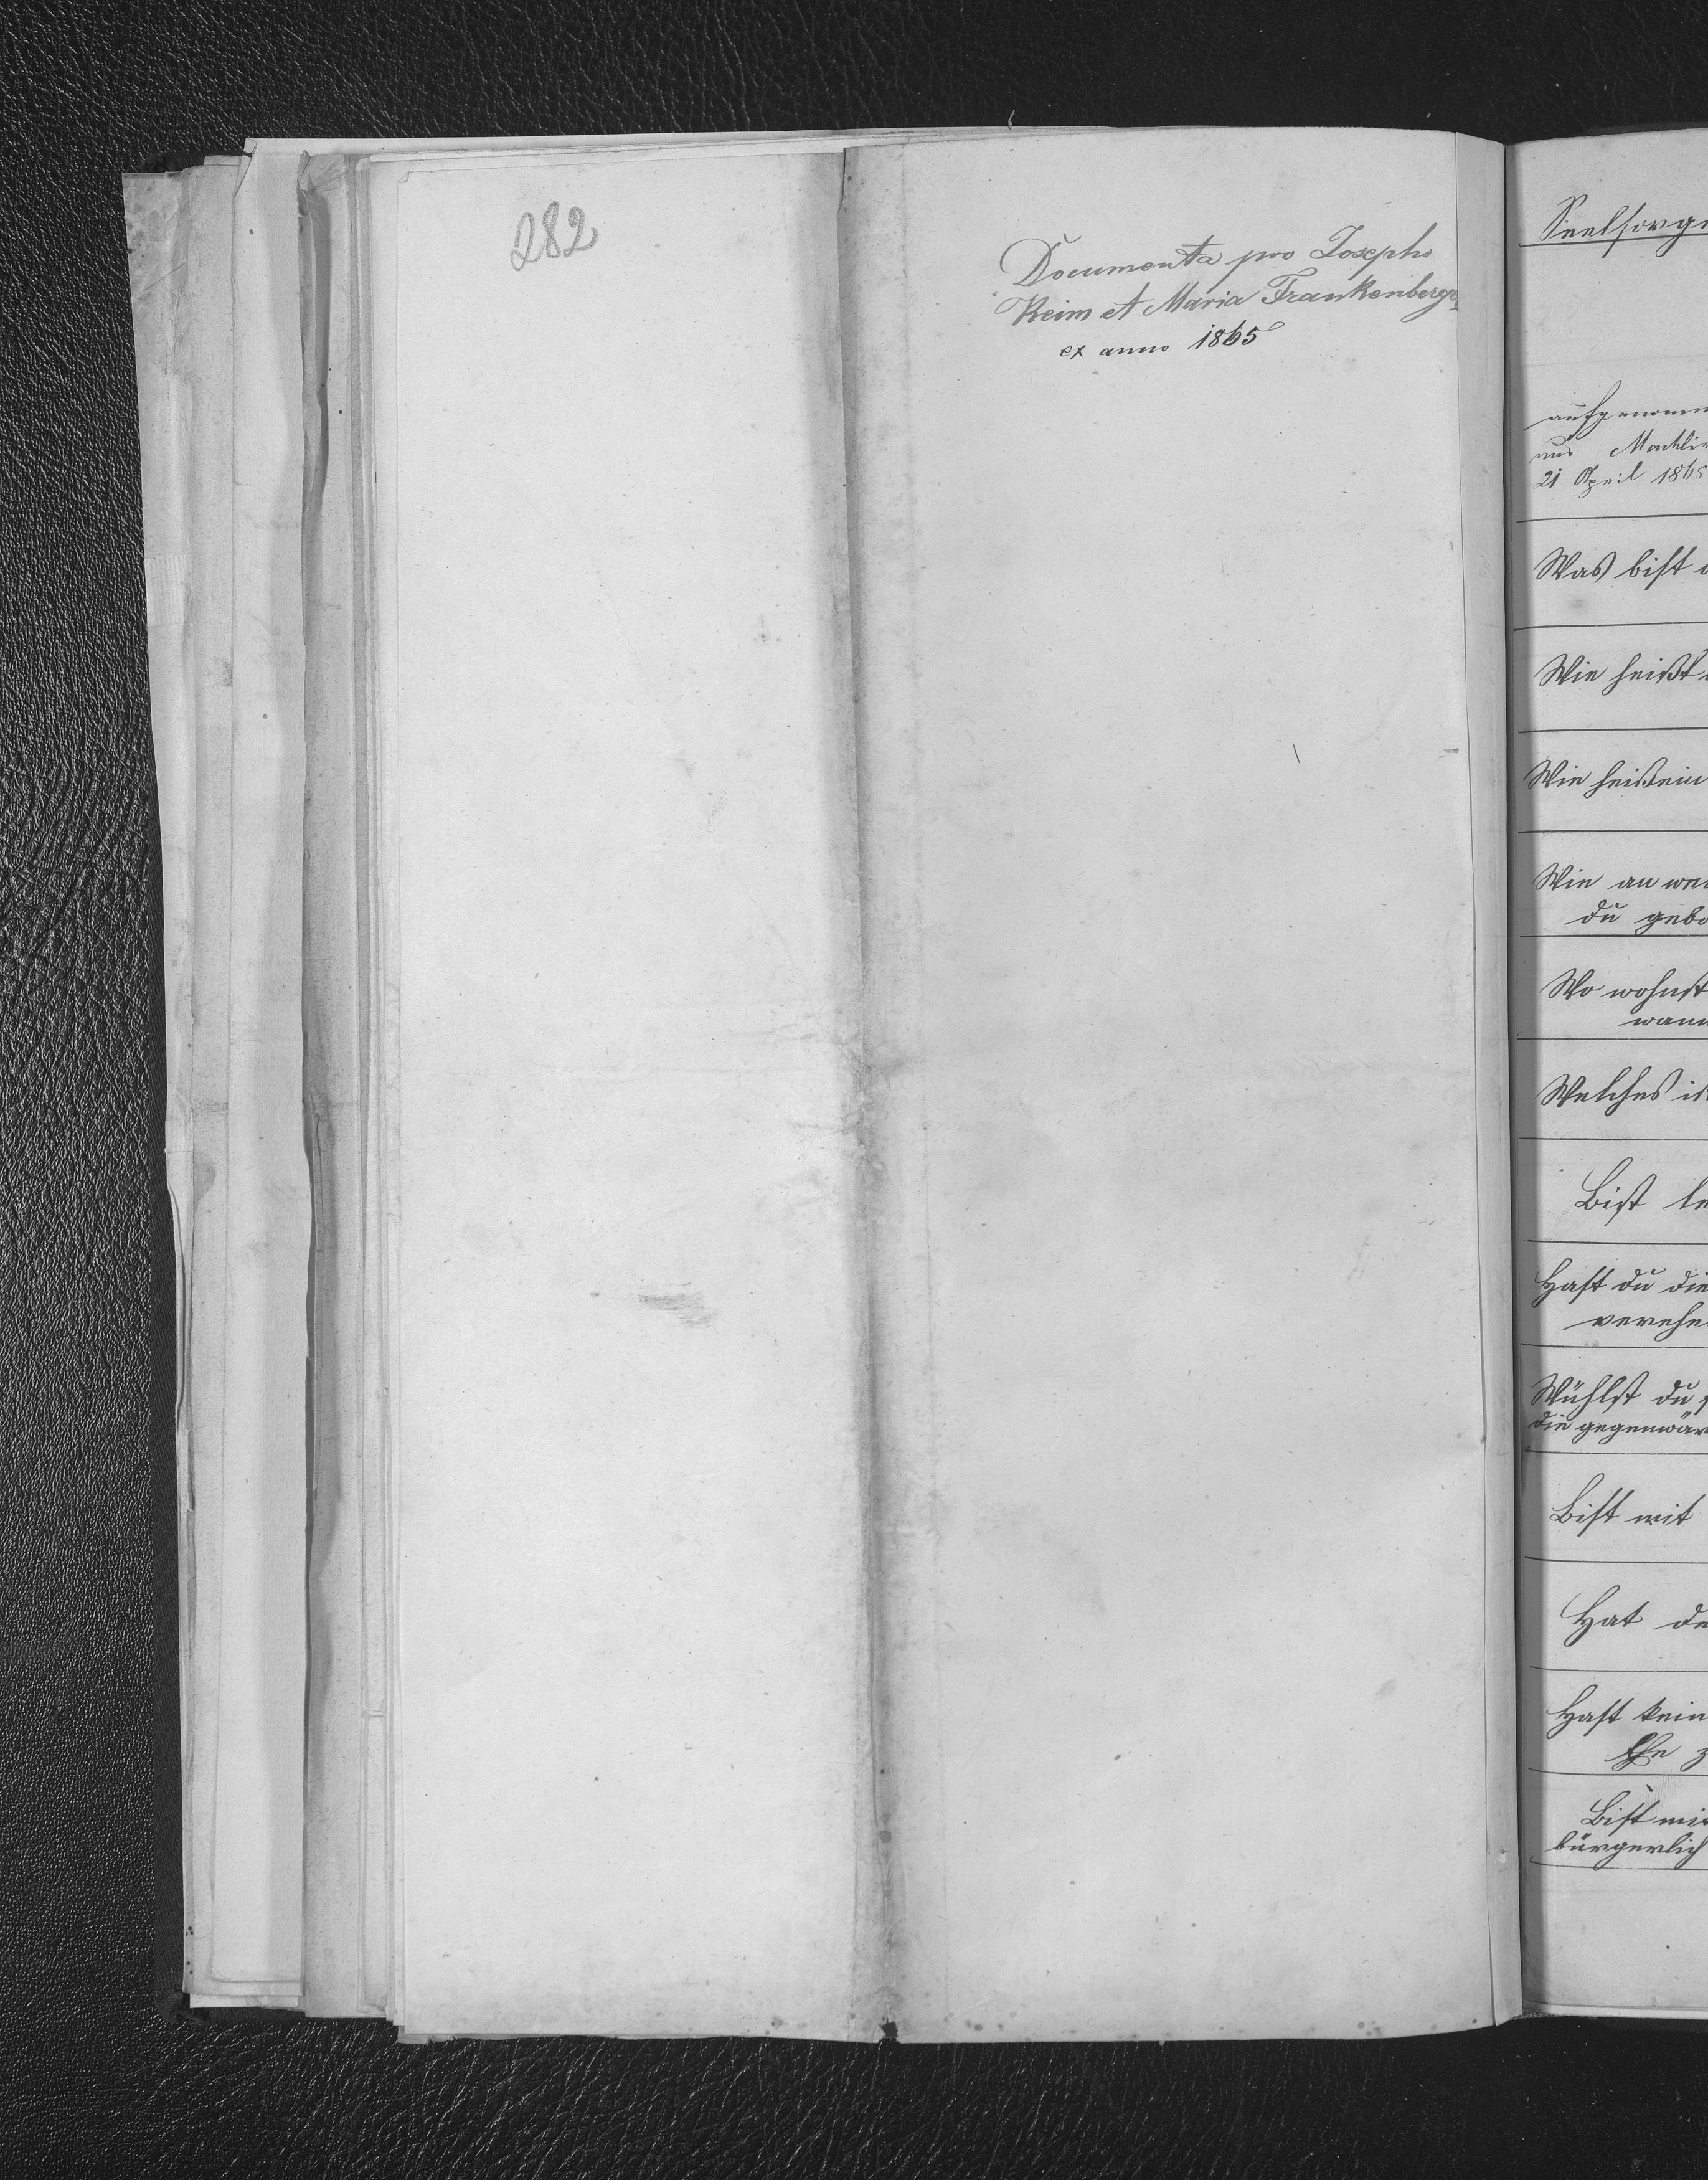 282
Documenta pro Josepho
Keim et Maria Frankenberger
ex anno 1865
Seelsorge
aufgenomm
aus
21 April 1865
Was bist d
Wie heißt
Wie heißen
Wie an we
du gebo
Wo wohnst
wann
Welches is
Bist le
Hast du die
verehe
Wühlst du
die gegenwär
Bist mit
Hat de
Hast kein
Ehe z
Bist mi
bürgerlich